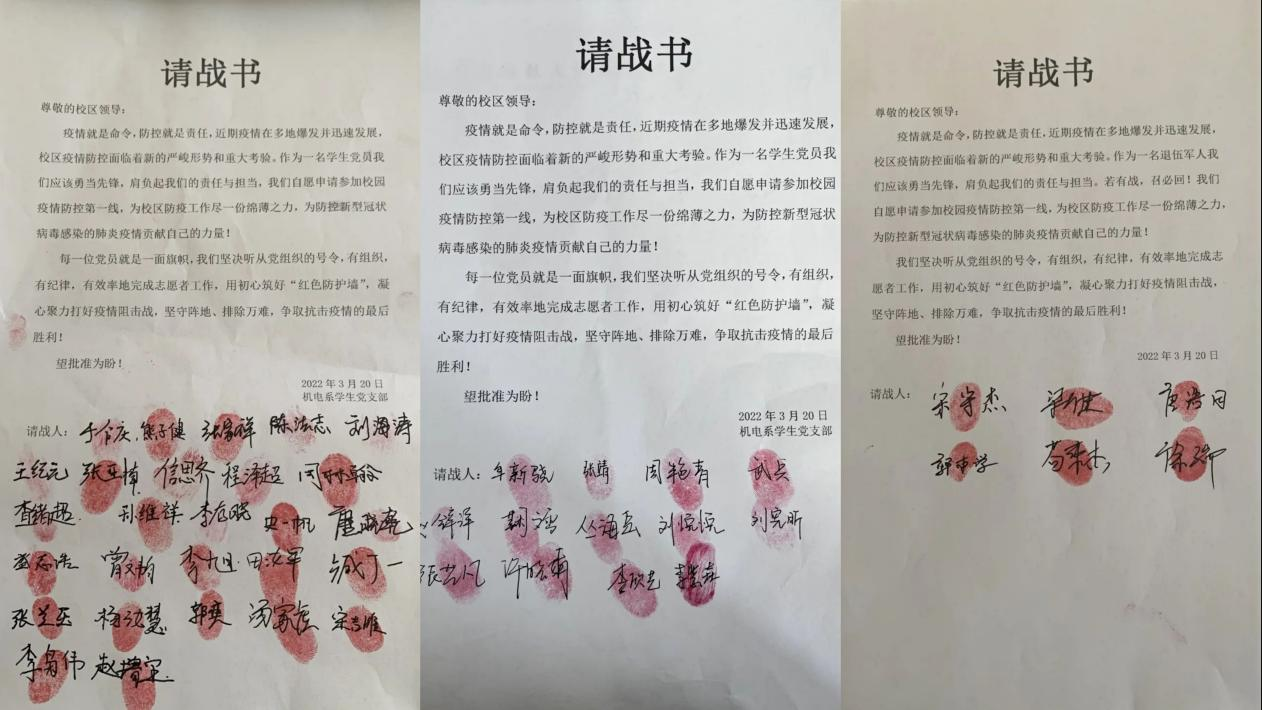 请战书
尊敬的校区领导：
疫情就是命令，防控就是责任，近期疫情在多地爆发并迅速发展，
校区疫情防控面临着新的严峻形势和重大考验。作为一名学生党员我
们应该勇当先锋，肩负起我们的责任与担当，我们自愿申请参加校园
疫情防控第一线，为校区防疫工作尽一份绵薄之力，为防控新型冠状
病毒感染的肺炎疫情贡献自己的力量！
每一位党员就是一面旗帜，我们坚决听从党组织的号令，有组织，
有纪律，有效率地完成志愿者工作，用初心筑好“红色防护墙”，凝
心聚力打好疫情阻击战，坚守阵地、排除万难，争取抗击疫情的最后
胜利！
望批准为盼！
2022 年 3 月 20 日
机电系学生党支部
请战人： 熊子健 刘海涛
王纪元 张亚楠 信思齐 程泽超
刘维祥 史一帆
曾灼 李旭 臧丁一
张兰玉 杨沁慧 郭奕 汤家庆
李昌伟
请战书
尊敬的校区领导：
疫情就是命令，防控就是责任，近期疫情在多地爆发并迅速发展，
校区疫情防控面临着新的严峻形势和重大考验。作为一名学生党员我
们应该勇当先锋，肩负起我们的责任与担当，我们自愿申请参加校园
疫情防控第一线，为校区防疫工作尽一份绵薄之力，为防控新型冠状
病毒感染的肺炎疫情贡献自己的力量！
每一位党员就是一面旗帜，我们坚决听从党组织的号令，有组织，
有纪律，有效率地完成志愿者工作，用初心筑好“红色防护墙”，凝
心聚力打好疫情阻击战，坚守阵地、排除万难，争取抗击疫情的最后
胜利！
望批准为盼！
2022 年 3 月 20 日
机电系学生党支部
请战人： 牟新骁 张婧 周艳青 武兵
丛海岳 刘悦悦 刘宪昕
张艺凡 许晓雨 李欣芝
请战书
尊敬的校区领导：
疫情就是命令，防控就是责任，近期疫情在多地爆发并迅速发展，
校区疫情防控面临着新的严峻形势和重大考验。作为一名退伍军人我
们应该勇当先锋，肩负起我们的责任与担当。若有战，召必回！我们
自愿申请参加校园疫情防控第一线，为校区防疫工作尽一份绵薄之力，
为防控新型冠状病毒感染的肺炎疫情贡献自己的力量！
我们坚决听从党组织的号令，有组织，有纪律，有效率地完成志
愿者工作，用初心筑好“红色防护墙”，凝心聚力打好疫情阻击战，
坚守阵地、排除万难，争取抗击疫情的最后胜利！
望批准为盼！
2022 年 3 月 20 日
请战人： 宋守杰